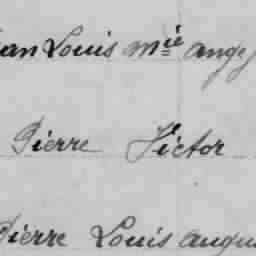 Jean Louis Mie ange
Pierre Victor
Pierre Louis augus